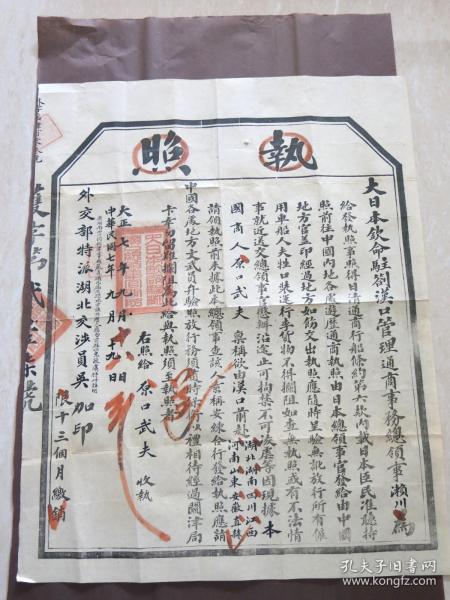 執照
大日本欽命駐劄漢口管理通商事務總領事瀨川為
給發執照事照得日清通商行船條約第六款內載日本臣民准聽持
照前往中國內地各處遊歷通商執照由日本總領事官發給由中國
地方官蓋印經過地方如飭交出執照應隨時呈驗無訛放行所有僱
用車船人夫牲口裝運行李貨物不得攔阻如查無執照或有不法情
事就近送交總領事官懲辦沿途止可拘禁不可凌虐等因現據本
國商人原口武夫稟稱欲由漢口前赴湖北湖南四川江西河南山東安徽直隸
請領執照前來據此本總領事查該人素稱安練合行發給執照應請
中國各處地方文武員弁驗照放行務須隨時保衛以禮相待經過關津局
卡幸勿留難攔阻為此給與執照須至執照者
右照給原口武夫收執
大正七年九月十六日
中華民國七年九月十九日
外交部特派湖北交涉員吳加印
限十三個月繳銷
孔夫子旧书网